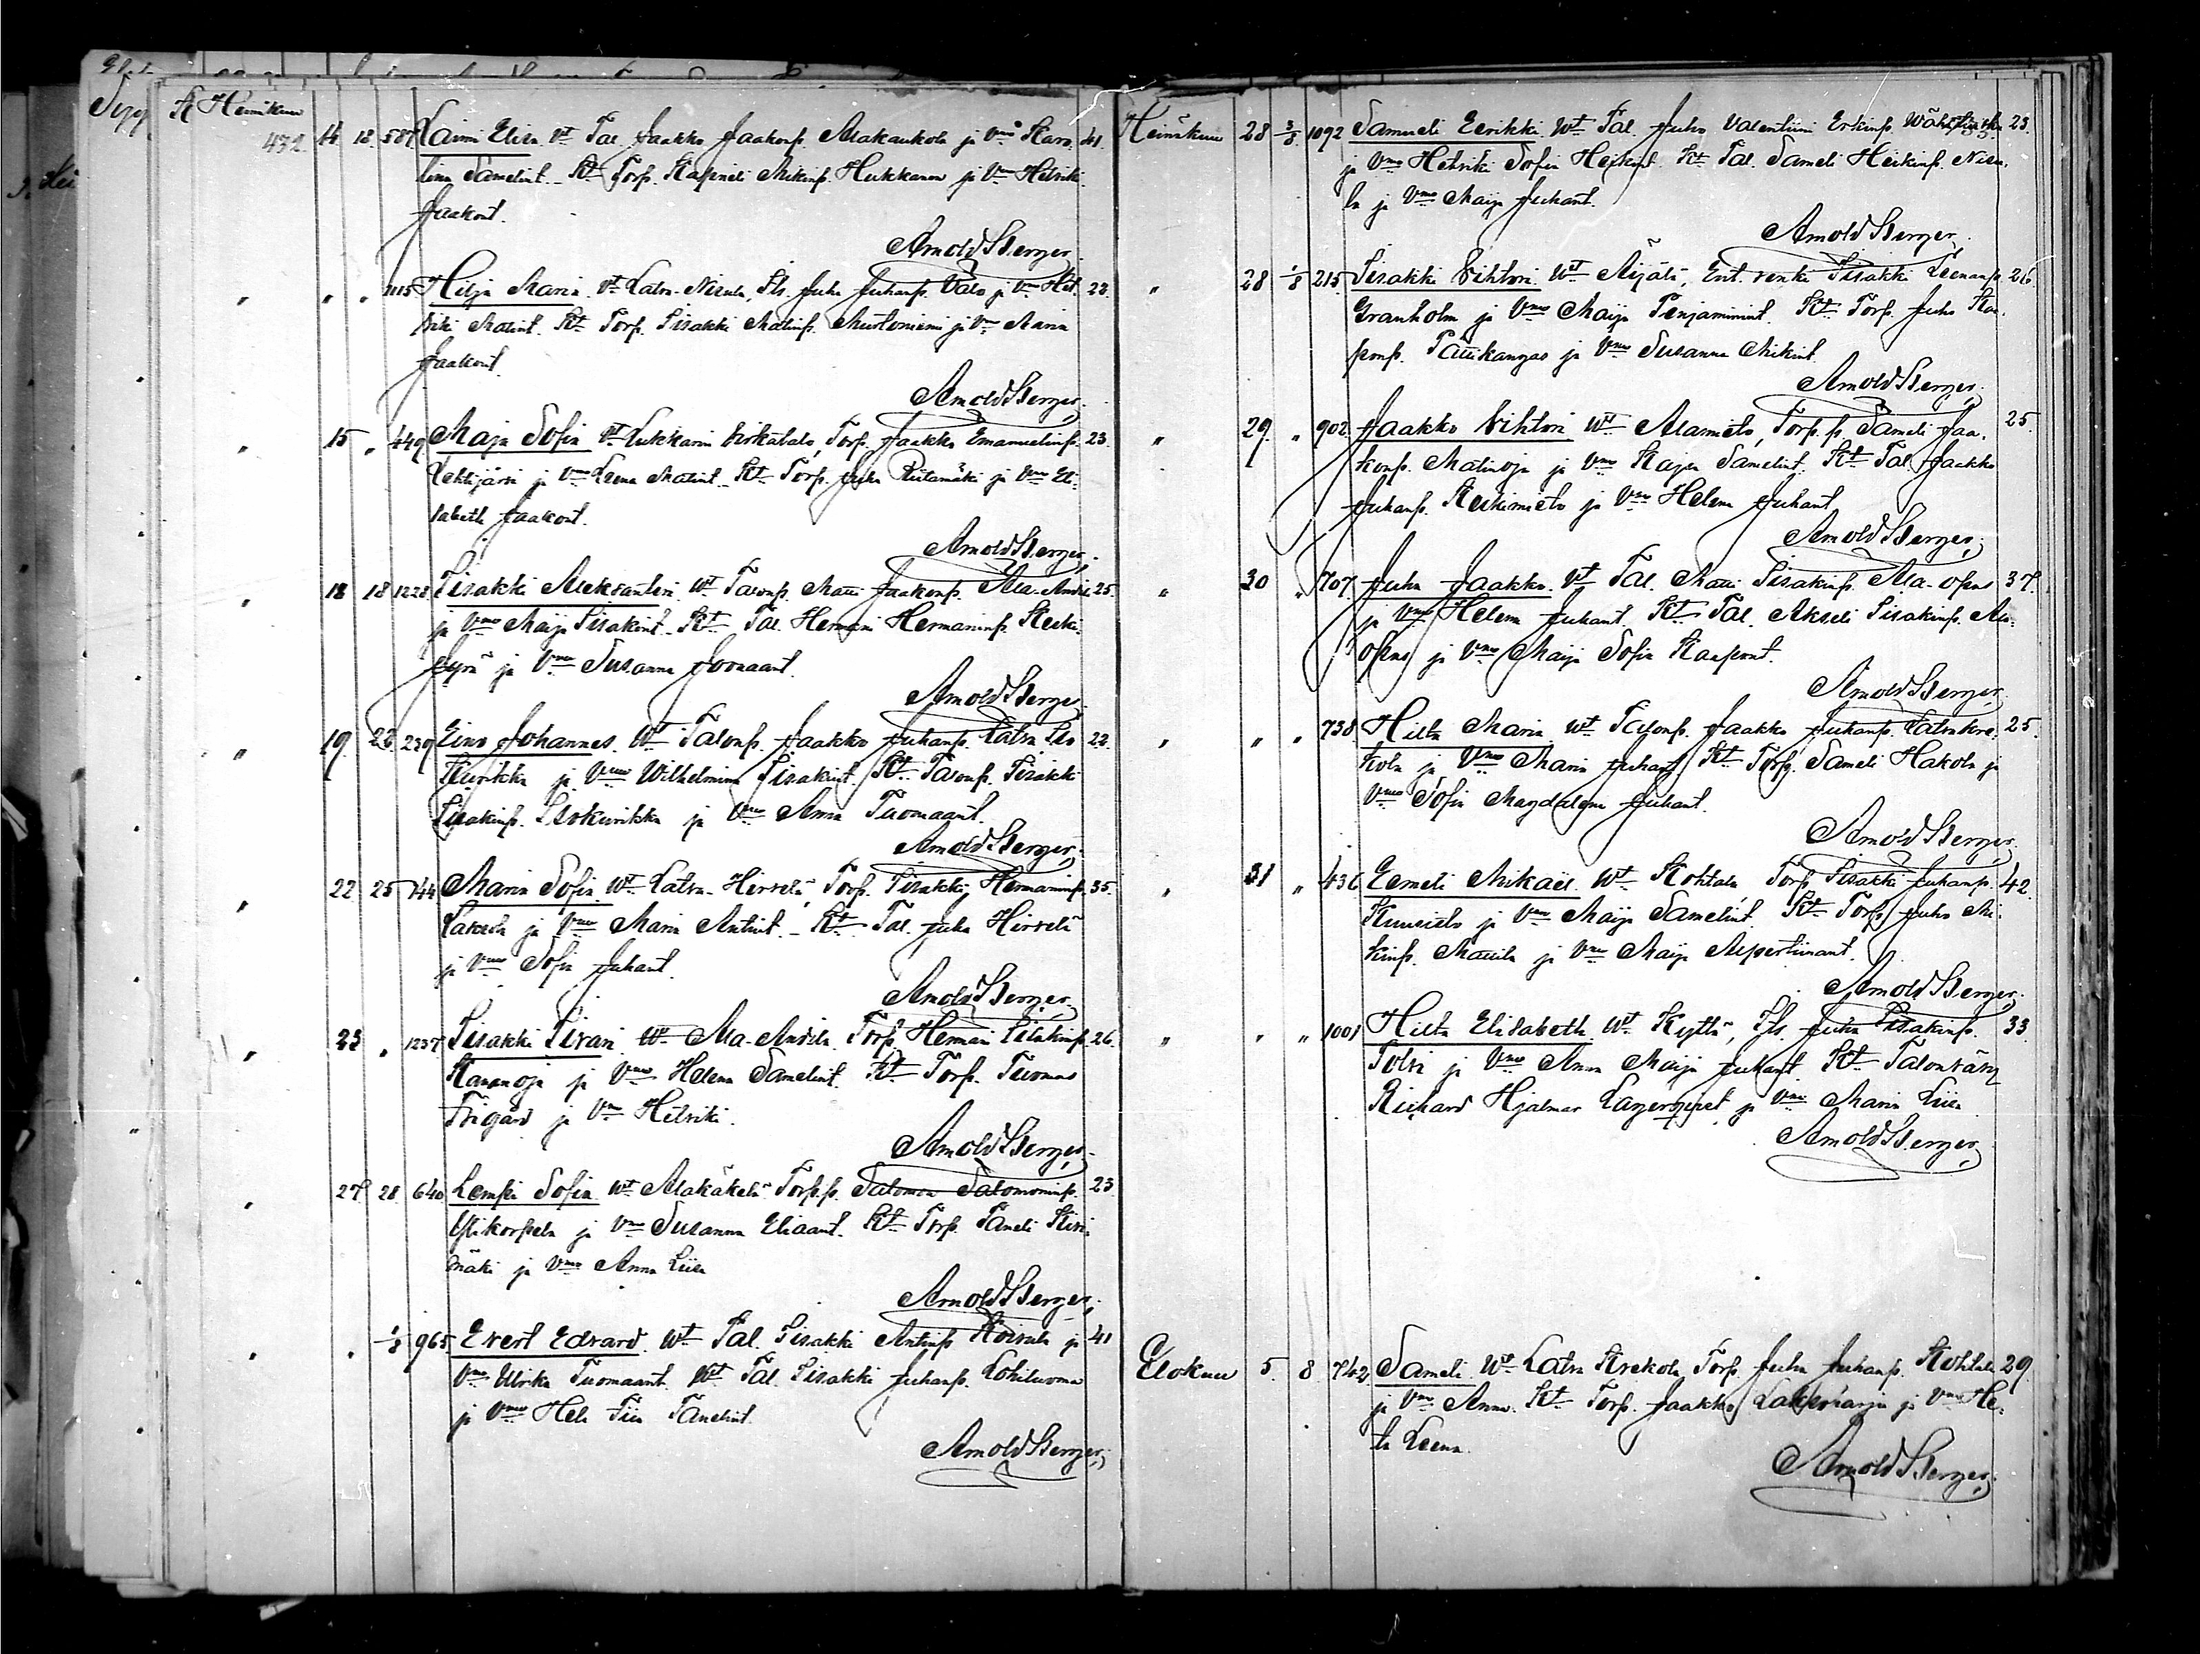 Heinäkuu
432. 14. 18. 507 Laimi Elisa. Wt Tal. Jaakko Jaakonp. Alakaukola ja Vmo Karo- 41
liina Samelint. Kt Torp. Kapneli Mikinp. Heikkanen ja Vmo Hetviki
Jaakont.
Arnold Berger.
" " " 1115 Hilja Maria. Wt Latva-Nirula, Its. Juha Juhanp. Valo ja Vmo Het- 23.
viki Matint. Kt Torp. Iisakki Matinp. Mustoniemi ja Vmo Maria
Jaakont
Arnold Berger.
" 15 " 449 Maija Sofia Wt Lukkarin virkatalo, Torp. Jaakko Emanuelinp. 23.
Lehtijärvi ja Vmo Leena Matint. Kt Torp. Juha Riitamäki ja Vmo Eli-
sabeth Jaakont.
Arnold Berger.
" 18 18 1228 Iisakki Aleksanteri Wt Talonp. Matti Jaakonp. Ala-Anttila 25.
ja Vmo Maija Iisakint. Kt Tal. Hermanni Hermaninp. Keski-
Jyrä ja Vmo Susanna Joonaant.
Arnold Berger
" 19 22. 239 Eino Johannes. Wt Talonp. Jaakko Juhanp. Latva Iso 22.
Kurikka ja Vmo Wilhelmina Iisakint. Kt Talonp. Iisakki
Iisakinp. Isokurikka ja Vmo Anna Tuomaant.
Arnold Berger.
" 22 25 744 Maria Sofia. Wt Latva-Hirvelä, Torp. Iisakki Hermaninp. 35.
ja Vmo Maria Antint. Kt Tal. Juha Hirvelä
ja Vmo Sofia Juhant.
Arnold Berger.
" 23 " 1237 Iisakki Iivari Wt Ala-Anttila Torp. Hermani Iisakinp. 26.
Kananoja ja Vmo Helena Samelint. Kt Torp. Tuomas
Frigård ja Vmo Hetviki.
Arnold Berger.
" 27 28. 640 Lempi Sofia Wt Alakäkelä Torp.p. Salomon Salomoninp. 23
Ylikorpela ja Vmo Susanna Eliaant. Kt Torp. Taneli Kivi-
mäki ja Vmo Anna Liisa
Arnold Berger.
" " 1/8 965 Evert Edvard. Wt Tal. Iisakki Antinp. Koivula ja 41
Vmo Ulrika Tuomaant. Kt Tal. Iisakki Juhanp. Lohiluoma
ja Vmo Hele Tiia Tanelint.
Arnold Berger.
Heinäkuu 28 3/8. 1092 Samueli Eerikki Wt Tal. Juho Valentiini Erkinp. 23.
ja Vmo Hetviki Sofia Heikint. Kt Tal. Sameli Heikinp. Niru-
la ja Vmo Maija Juhant.
Arnold Berger.
" 28 1/8 215 Iisakki Vihtori Wt Äijälä, Ent. renki Iisakki Leenanp. 26.
Granholm ja Vmo Maija Penjaminint. Kt Torp. Juho Kaa-
ponp. Pattikangas ja Vmo Susanna Mikint.
Arnold Berger.
" 29. " 902. Jaakko Vihtori Wt Alamieto, Torp.p. Sameli Jaa- 25.
konp. Matinoja ja Vmo Kajsa Samelint. Kt Tal. Jaakko
Juhanp. Keskimieto ja Vmo Helena Juhant
Arnold Berger.
" 30 " 707. Juha Jaakko. Wt Tal. Matti Iisakinp. Ala-Opas 37.
ja Vmo Helena Juhant. Kt Tal. Akseli Iisakinp. Ala-
Opas ja Vmo Maija Sofia Kaapont.
Arnold Berger.
" " " 738 Hilta Maria Wt Talonp. Jaakko Juhanp. Latvakre- 25.
kola ja Vmo Maria Juhant. Kt Torp. Sameli Hakola ja
Vmo Sofia Magdalena Juhant.
Arnold Berger.
" 31 " 436 Eemeli Mikael Wt Kohtala Torp. Iisakki Juhanp. 42.
Kuusisto ja Vmo Maija Samelint. Kt Torp. Juho Mi-
kinp. Mattila ja Vmo Maija Alpertiinant.
Arnold Berger.
" " " 1001 Hilta Elisabeth Wt Kyttä, Its. Juha Iisakinp. 33.
Tolvi ja Vmo Anna Maija Juhant. Kt Talonväri
Richard Hjalmar ja Vmo Maria Liisa
Arnold Berger.
Elokuu 5. 8 742 Sameli Wt Latva Krekola Torp. Juha Juhanp. Kohtala 29.
ja Vmo Anna. Kt Torp. Jaakko Lakioharju ja Vmo He-
ta Leena.
Arnold Berger.